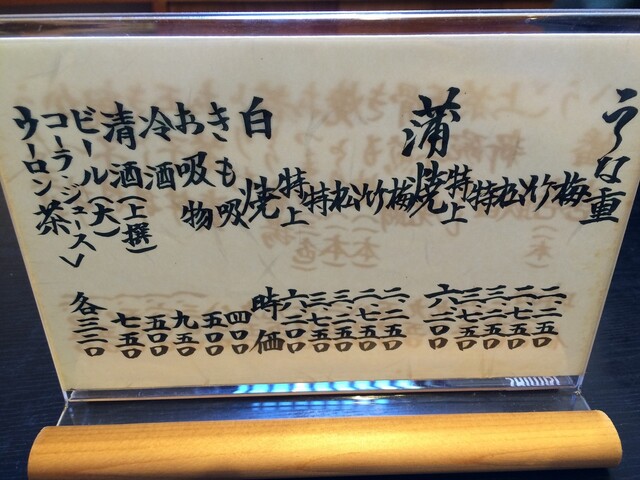 うな重
梅 二、二五〇
竹 二、七五〇
松 三、二五〇
特 三、七五〇
特上 六、二〇〇
蒲焼
梅 二、二五〇
竹 二、七五〇
松 三、二五〇
特 三、七五〇
特上 六、二〇〇
白焼 時価
きも吸 四〇〇
お吸物 五〇〇
冷酒 九五〇
清酒(上撰) 五〇〇
ビール(大) 七五〇
コーラ・ジュース
ウーロン茶 各三三〇